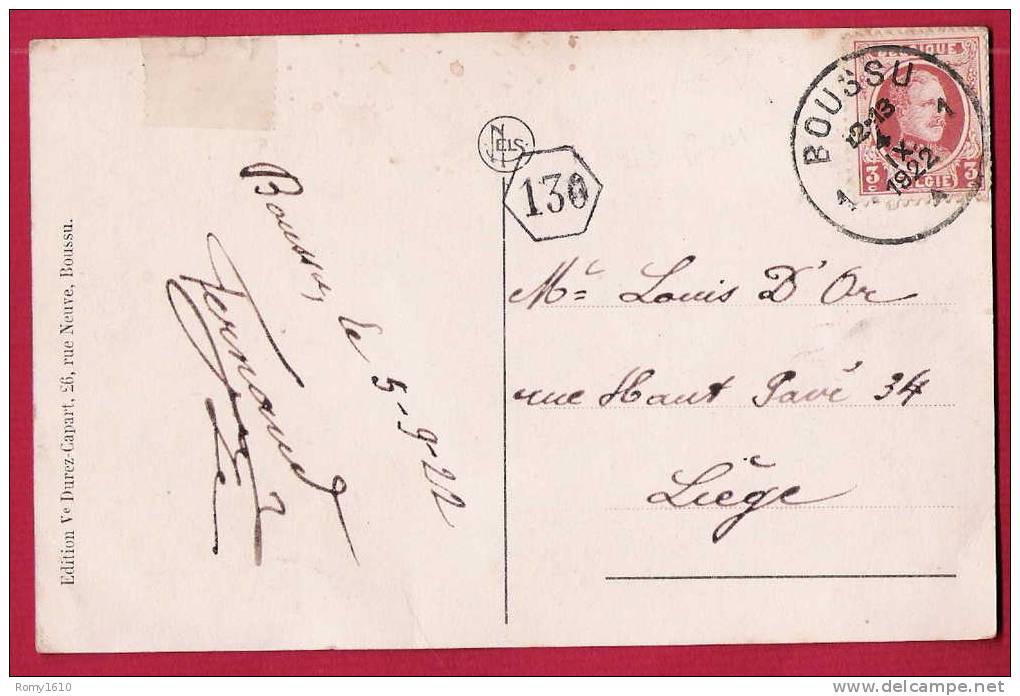 Edition Ve Durez-Capart, 26, rue Neuve, Boussu.
Boussu, le 5-9-22
Fernand
NELS
130
BOUSSU
12-13
4 IX
1922
1 1
BELGIQUE
3c 3c
BELGIE
Me Louis D'Or
rue Haut Pavé 34
Liège
Romy1610
delcampe.net